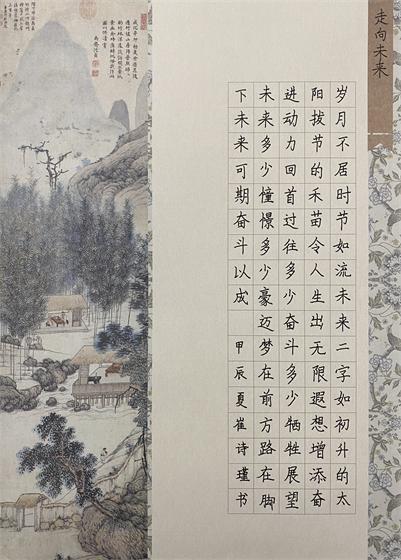 走向未来
岁月不居时节如流未来二字如初升的太
阳拔节的禾苗令人生出无限遐想增添奋
进动力回首过往多少奋斗多少牺牲展望
未来多少憧憬多少豪迈梦在前方路在脚
下未来可期奋斗以成 甲辰夏崔诗瑾书